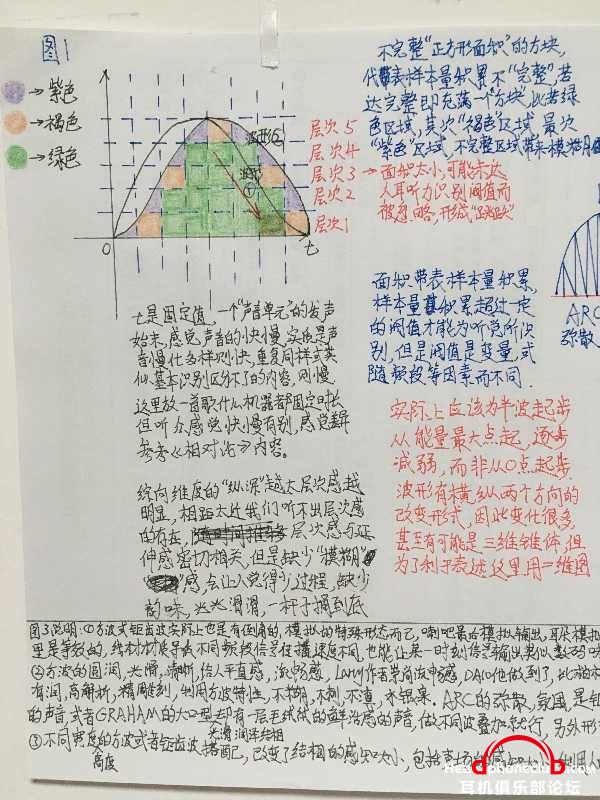 图1
→紫色
→褐色
→绿色
层次5
层次4
层次3
层次2
层次1
波形包
①
0
t
不完整“正方形面积”的方块,
代表样本量积累不“完整”,若
达完整即充满一个“方块”,比若绿
色区域,其次“褐色”区域,最次
“紫色”区域,不完整区域带来模糊
→面积太小,可能未达
人耳听力识别阈值而
被忽略,形成“跳跃”
面积带表样本量积累,
样本量积累超过一定
的阈值才能为听觉所识
别,但是阈值是变量,或
随频段等因素而不同.
ARC
弥散
t是固定值,一个“声音单元”的发声
始末,感觉声音的快慢,实质是声
音慢什多样则快,重复同样或类
似,基本识别区分不了的内容,则慢
这里放一首歌什么机器都固定时长
但听众感觉快慢有别,感觉差异
参考《相对论》内容。
实际上应该为半波起步
从能量最大点起,逐步
减弱,而非从0点起步.
波形有横,纵两个方向的
改变形式,因此变化很多,
甚至有可能是三维锥体,但
为了利于表述这里用二维图
纵向维度的“纵深”越大层次感越
明显,相距太近我们听不出层次感
的存在,层次感与延
伸感密切相关,但是缺少“模糊”
感,会让人觉得少过程,缺少
韵味,光光滑滑,一杆子捅到底
图3说明:①方波或钜齿波实际上也是有倒角的,模拟的特殊形态而已,喇叭最后模拟输出,耳朵模拟
里是等效的,线材材质导致不同频段信号传播速度不同,也能让某一时刻信号输出类似数码味
②方波的圆润,光滑,清晰,给人平直感,流畅感,
有润,高解析,精雕刻,利用方波特性,不糊,不刺,不渣,水银泉。ARC的弥散,氛围,是钜
的声,或者GRAHAM的大口型却有一层毛绒绒的鲜活感的声音,做不同波叠加就行,另外形
③不同宽度的方波或者钜齿波搭配,改变了结相的感知大小,包括声场的感知大小,
高度
光滑润连结相
Headphoneclub.com
耳机俱乐部论坛